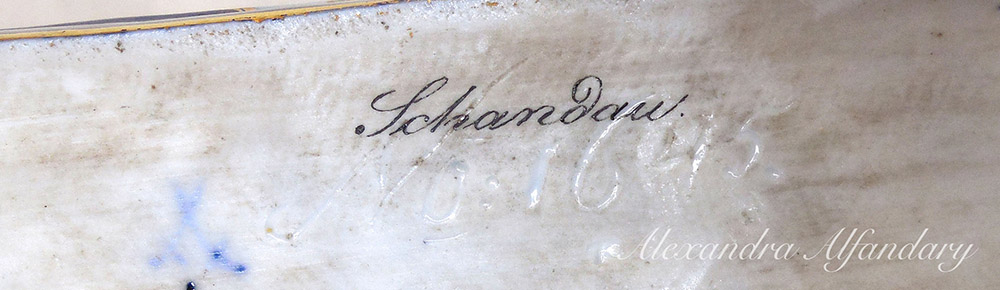 Schandau.
No. 16
Alexandra Alfandary